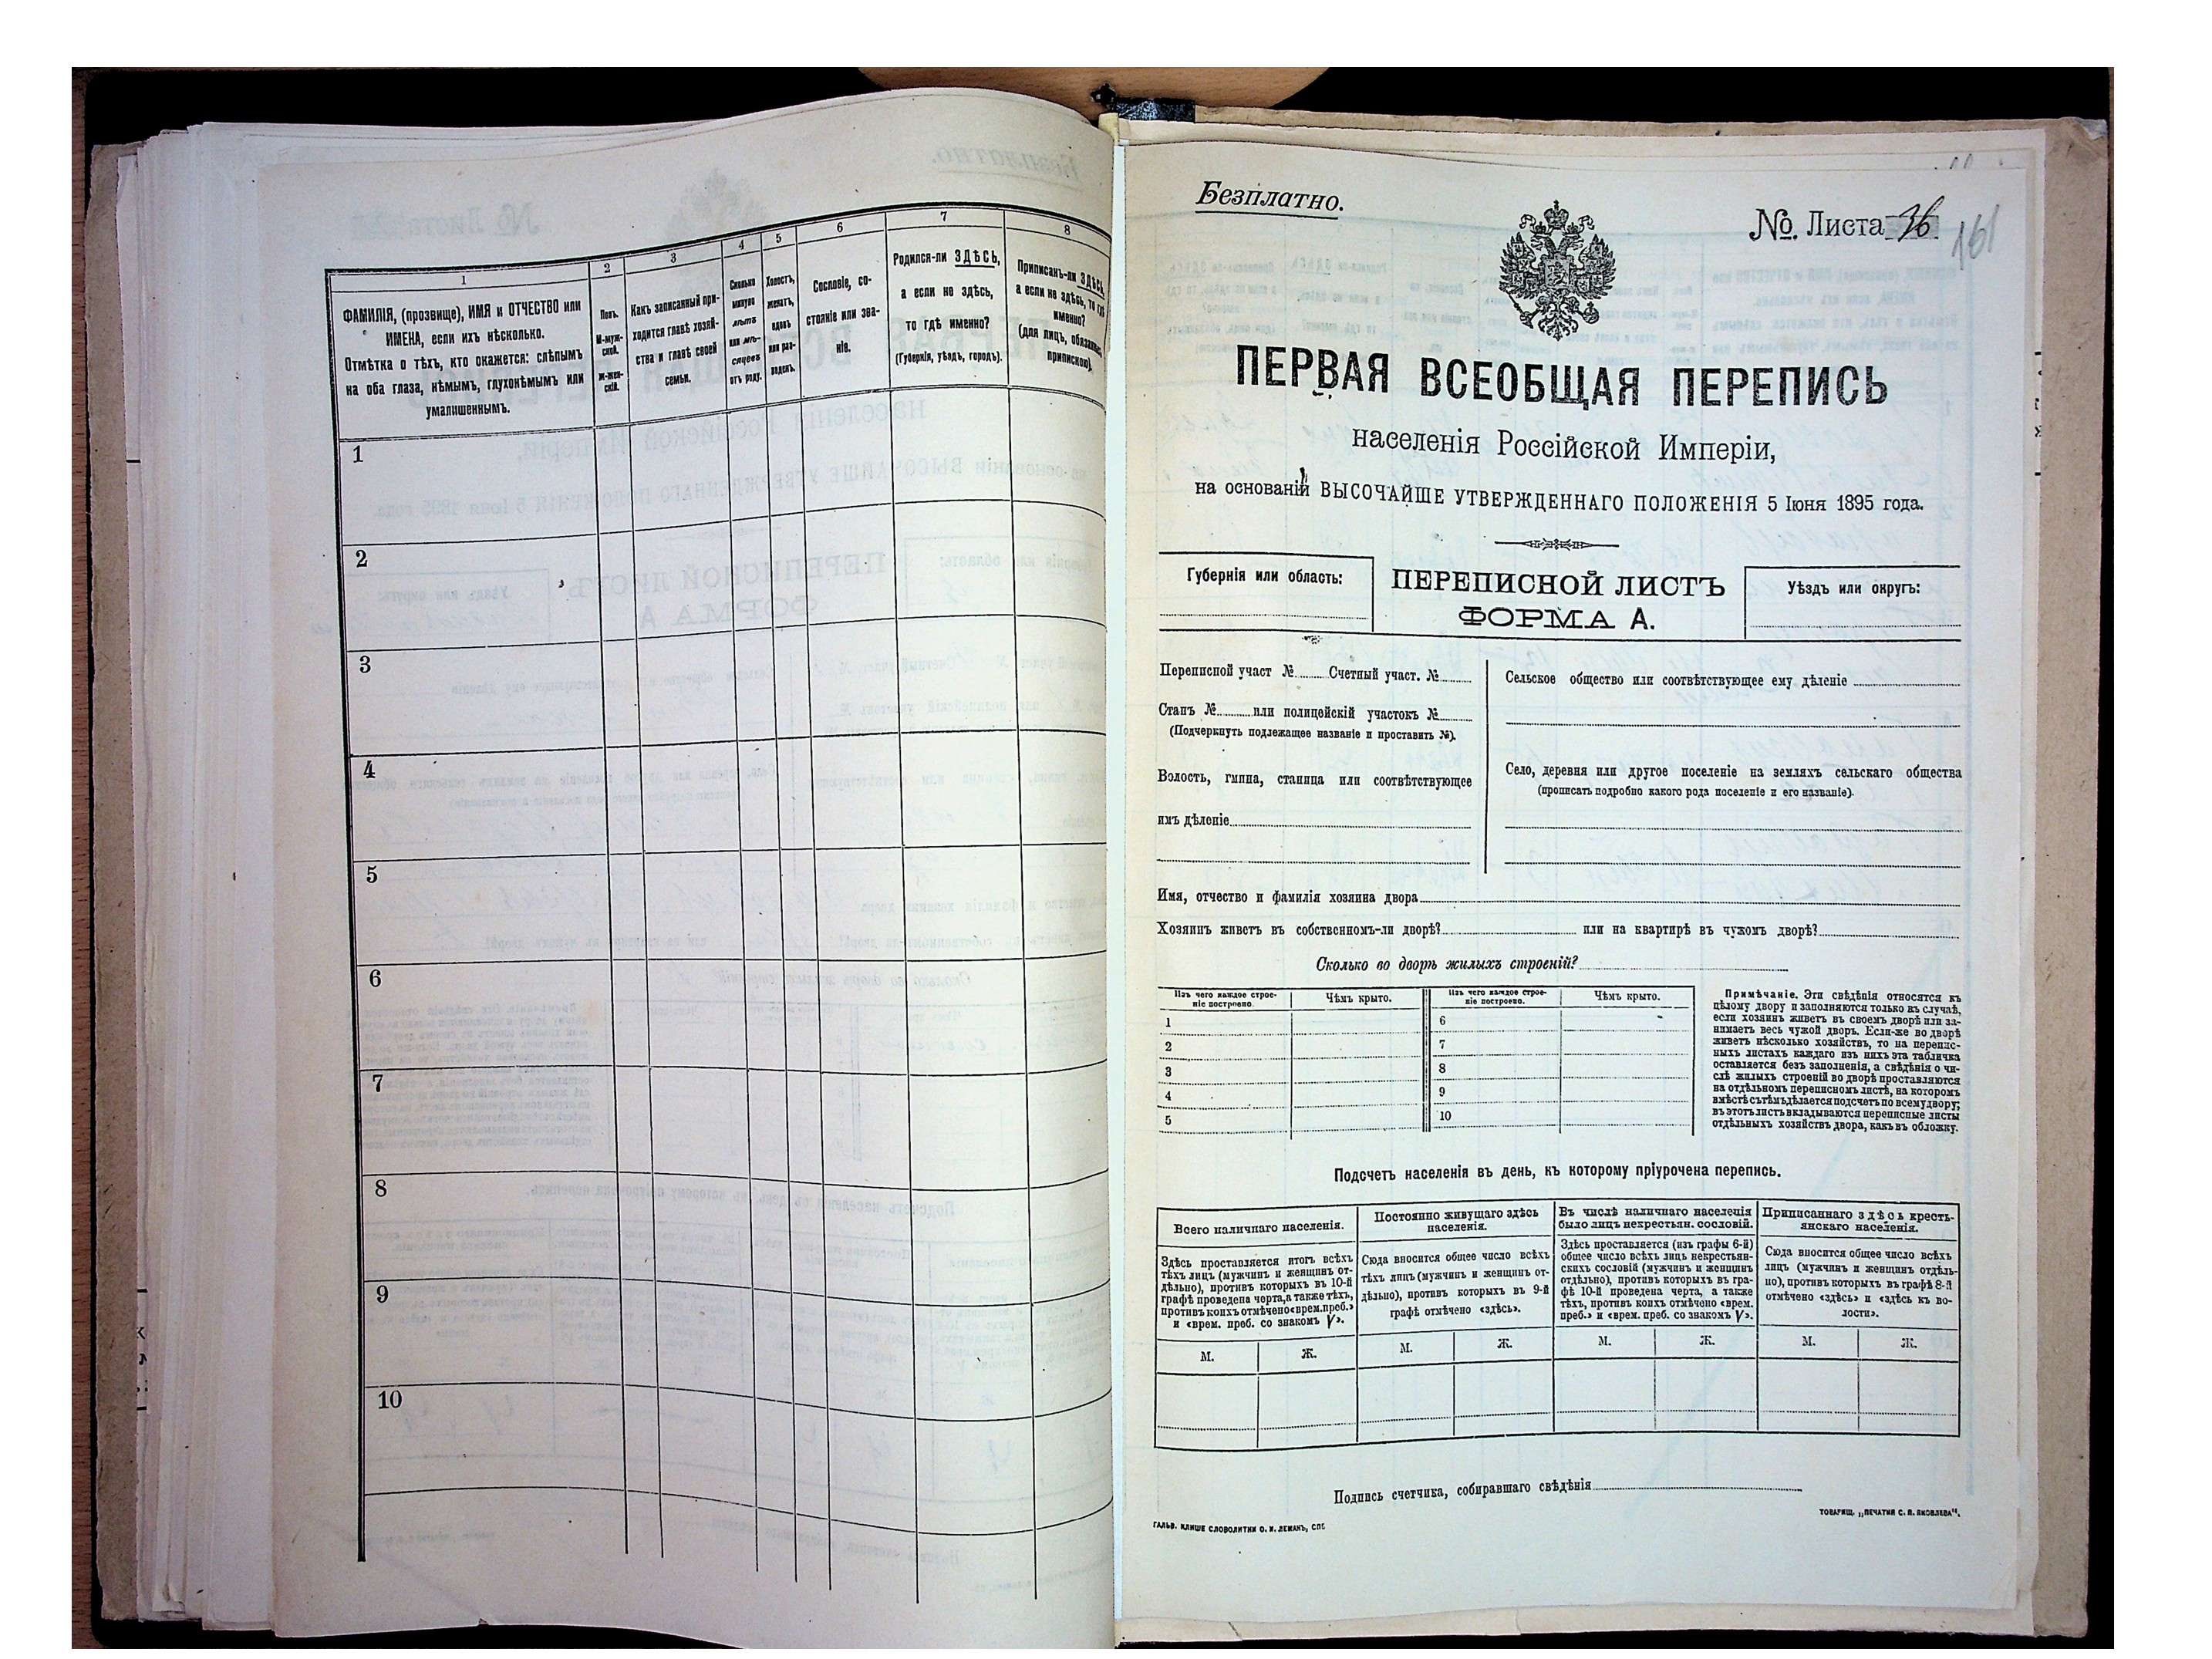 1
2
3
4
5
6
7
8
ФАМИЛІЯ, (прозвище), ИМЯ и ОТЧЕСТВО или
ИМЕНА, если ихъ нѣсколько.
Отмѣтка о тѣхъ, кто окажется: слѣпымъ
на оба глаза, нѣмымъ, глухонѣмымъ или
умалишеннымъ.
Полъ.
М-муж-
ской.
ж-жен-
скій.
Какъ записанный при-
ходится главѣ хозяй-
ства и главѣ своей
семьи.
Сколько
минуло
лѣтъ
или мѣ-
сяцевъ
отъ роду.
Холостъ,
женатъ,
вдовъ
или раз-
веденъ.
Сословіе, со-
стояніе или зва-
ніе.
Родился-ли ЗДѢСЬ,
а если не здѣсь,
то гдѣ именно?
(Губернія, уѣздъ, городъ).
Приписанъ-ли ЗДѢСЬ,
а если не здѣсь, то гдѣ
именно?
(для лицъ, обязанныхъ
припискою).
1
2
3
4
5
6
7
8
9
10
Безплатно.
№ Листа 36
161
ПЕРВАЯ ВСЕОБЩАЯ ПЕРЕПИСЬ
населенія Россійской Имперіи,
на основаніи ВЫСОЧАЙШЕ УТВЕРЖДЕННАГО ПОЛОЖЕНІЯ 5 Іюня 1895 года.
Губернія или область:
ПЕРЕПИСНОЙ ЛИСТЪ
ФОРМА А.
Уѣздъ или округъ:
Переписной участ № Счетный участ. №
Станъ № или полицейскій участокъ №
(Подчеркнуть подлежащее названіе и проставить №).
Волость, гмина, станица или соотвѣтствующее
имъ дѣленіе
Сельское общество или соотвѣтствующее ему дѣленіе
Село, деревня или другое поселеніе на земляхъ сельскаго общества
(прописать подробно какого рода поселеніе и его названіе).
Имя, отчество и фамилія хозяина двора
Хозяинъ живетъ въ собственномъ-ли дворѣ? или на квартирѣ въ чужомъ дворѣ?
Сколько во дворѣ жилыхъ строеній?
Изъ чего каждое строе-
ніе построено.
Чѣмъ крыто.
Изъ чего каждое строе-
ніе построено.
Чѣмъ крыто.
1
2
3
4
5
6
7
8
9
10
Примѣчаніе. Эти свѣдѣнія относятся къ
цѣлому двору и заполняются только въ случаѣ,
если хозяинъ живетъ въ своемъ дворѣ или за-
нимаетъ весь чужой дворъ. Если-же во дворѣ
живетъ нѣсколько хозяйствъ, то на перепис-
ныхъ листахъ каждаго изъ нихъ эта табличка
оставляется безъ заполненія, а свѣдѣнія о чи-
слѣ жилыхъ строеній во дворѣ проставляются
на отдѣльномъ переписномъ листѣ, на которомъ
вмѣстѣ съ тѣмъ дѣлается подсчетъ по всему двору;
въ этотъ листъ вкладываются переписные листы
отдѣльныхъ хозяйствъ двора, какъ въ обложку.
Подсчетъ населенія въ день, къ которому пріурочена перепись.
Всего наличнаго населенія.
Здѣсь проставляется итогъ всѣхъ
тѣхъ лицъ (мужчинъ и женщинъ от-
дѣльно), противъ которыхъ въ 10-й
графѣ проведена черта, а также тѣхъ,
противъ коихъ отмѣчено «врем. преб.»
и «врем. преб. со знакомъ V».
Постоянно живущаго здѣсь
населенія.
Сюда вносится общее число всѣхъ
тѣхъ лицъ (мужчинъ и женщинъ от-
дѣльно), противъ которыхъ въ 9-й
графѣ отмѣчено «здѣсь».
Въ числѣ наличнаго населенія
было лицъ некрестьян. сословій.
Здѣсь проставляется (изъ графы 6-й)
общее число всѣхъ лицъ некрестьян-
скихъ сословій (мужчинъ и женщинъ
отдѣльно), противъ которыхъ въ гра-
фѣ 10-й проведена черта, а также
тѣхъ, противъ коихъ отмѣчено «врем.
преб.» и «врем. преб. со знакомъ V».
Приписаннаго здѣсь кресть-
янскаго населенія.
Сюда вносится общее число всѣхъ
лицъ (мужчинъ и женщинъ отдѣль-
но), противъ которыхъ въ графѣ 8-й
отмѣчено «здѣсь» и «здѣсь къ во-
лости».
М. Ж. М. Ж. М. Ж. М. Ж.
Подпись счетчика, собиравшаго свѣдѣнія
ГАЛЬВ. КЛИШЕ СЛОВОЛИТНИ О. И. ЛЕМАНЪ, СПБ.
ТОВАРИЩ. „ПЕЧАТНЯ С. П. ЯКОВЛЕВА“.